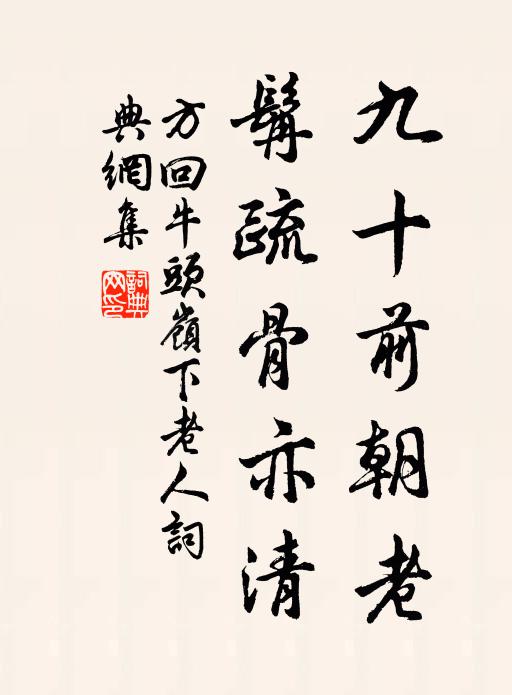 九十前朝老
髯疏骨亦清
方回牛頭嶺下老人詞
典網集
詞典
网印